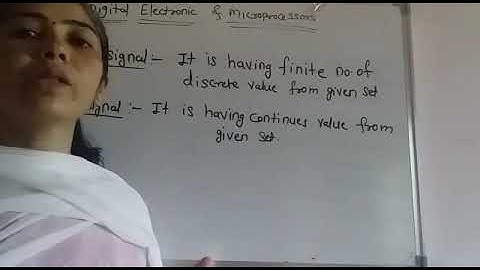 Digital Electronic & Microprocessors
signal :- It is having finite no. of
discrete value from given set
signal :- It is having continues value from
given set.